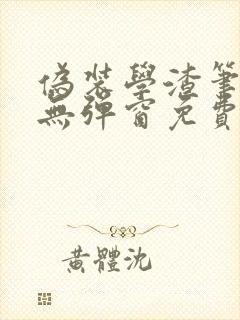 偽裝學渣筆
無彈窗免費
黃體沈